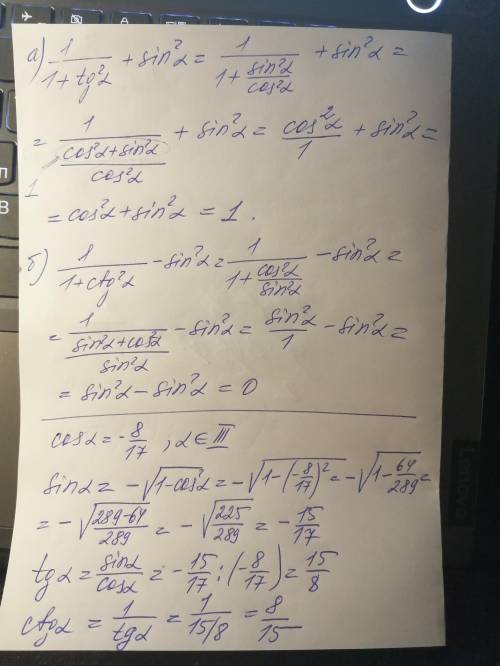 а) 1/(1+tg²α) + sin²α = 1/(1+sin²α/cos²α) + sin²α =
= 1/((cos²α+sin²α)/cos²α) + sin²α = cos²α/1 + sin²α =
1
= cos²α + sin²α = 1.
б) 1/(1+ctg²α) - sin²α = 1/(1+cos²α/sin²α) - sin²α =
= 1/((sin²α+cos²α)/sin²α) - sin²α = sin²α/1 - sin²α =
= sin²α - sin²α = 0
cosα = -8/17, α ∈ III
sinα = -√(1-cos²α) = -√(1-(-8/17)²) = -√(1-64/289) =
= -√((289-64)/289) = -√(225/289) = -15/17
tgα = sinα/cosα = -15/17 : (-8/17) = 15/8
ctgα = 1/tgα = 1/(15/8) = 8/15